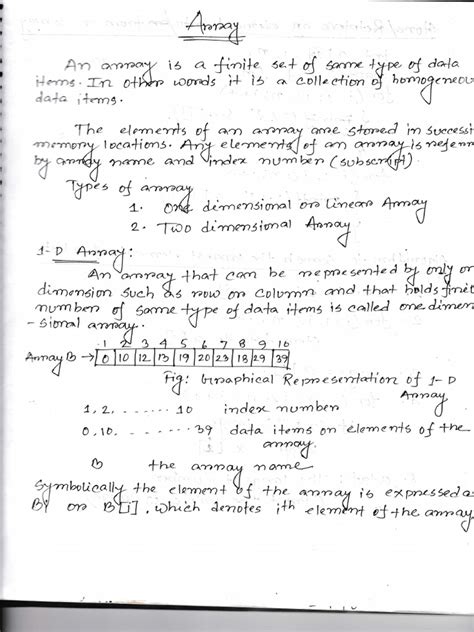 Array
An array is a finite set of same type of data
items. In other words it is a collection of homogeneou
data items.
The elements of an array are stored in successi
memory locations. Any elements of an array is referr
by array name and index number (subscript).
Types of array
1. One dimensional or Linear Array
2. Two dimensional Array
1-D Array:
An array that can be represented by only on
dimension such as row or column and that holds finit
number of same type of data items is called one dimen
-sional array.
1 2 3 4 5 6 7 8 9 10
Array B → 0 10 12 13 19 20 23 18 29 39
Fig: Graphical Representation of 1-D
Array
1, 2. ....... 10 index number
0, 10. ....... 39 data items or elements of the
array.
B the array name
Symbolically the element of the array is expressed a
Bi or B[i], which denotes ith element of the array.